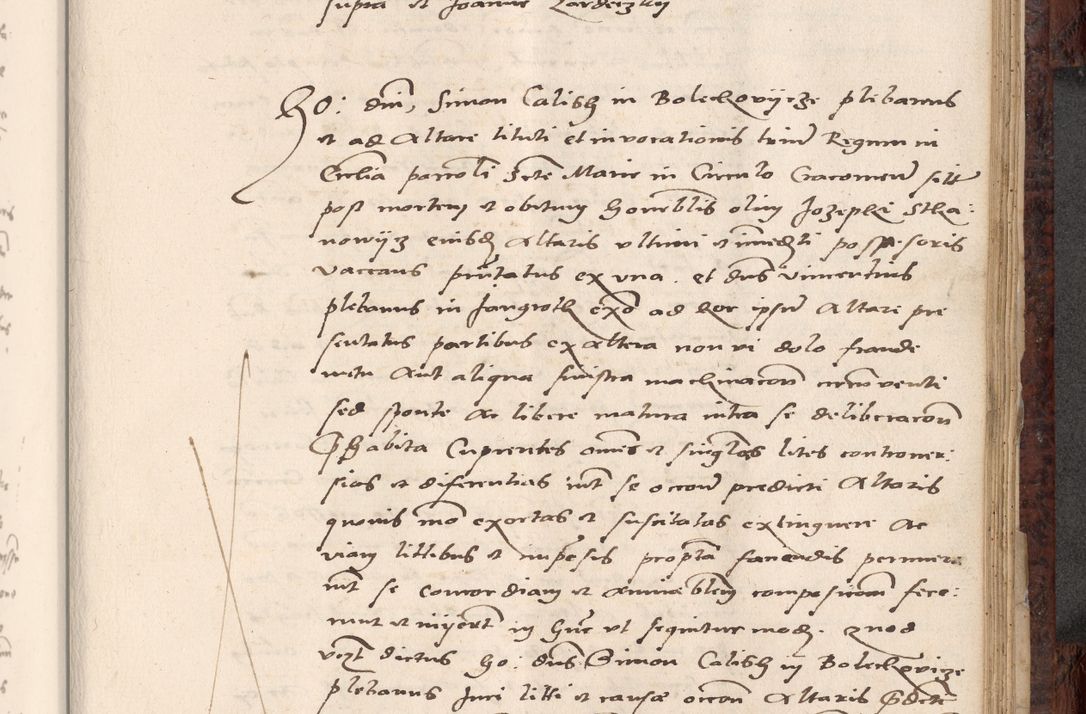 supra et Joanne Zardeczky
Ho: dni, Simon Calish in Bolechovijcze plebanus
et ad Altare tituli et invocationis trium Regum in
Ecclia parroli Scte Marie in Circulo Cracovien sitt
post mortem et obitum honorblis olim Jozephi Stka:
nowijcz eiusdz Altaris ultimi et immedti possessoris
vaccans pntatus ex una. et dns Vincentius
plebanus in Jangroth ex ad hoc ipsm Altare pre
sentatus partibus ex altera non vi dolo fraude
metu Aut aliqua sinistra machinacon circumventi
sed sponte Ac libere matura intra se deliberacon
phabita Cupientes omes et singlas lites controver:
sias et diferentias int se occone predicti Altaris
quovis mo exortas et suscitatas extinguere Ac
viam littibus et impesis propta faciendis permere
int se concordiam et amicablem composicionem fece:
runt et inijernt in hunc ut sequitur modz. Quod
videlt dictus ho: dns Simon Calish in Bolechovicze
plebanus Juri litti et causae occon Altaris pdicte